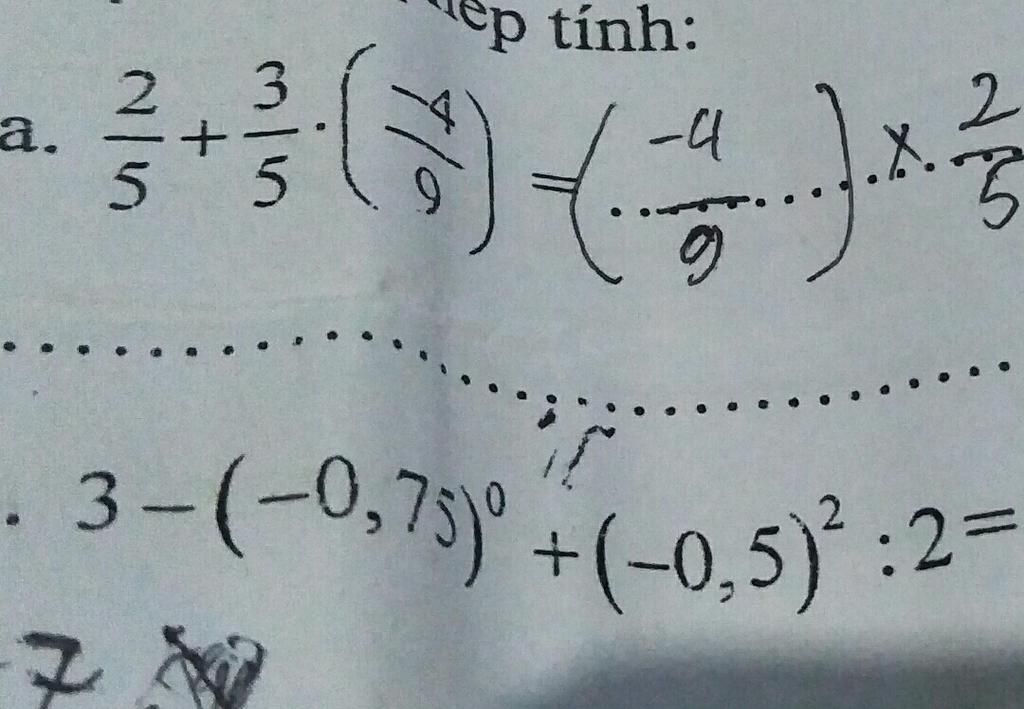 tính:
a. 2/5 + 3/5 · (-4/9) = (-4/9) x 2/5
. 3 – (–0,75)⁰ + (–0,5)² : 2 =
7